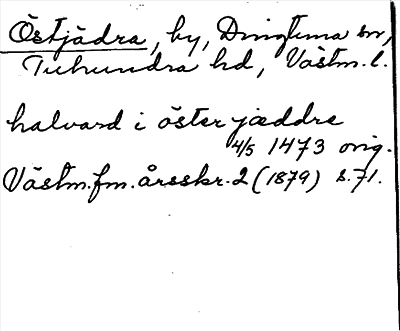 Östjädra, by, Dingtuna sn,
Tuhundra hd, Västm. l.
halvard i öster jæddre
4/5 1473 orig.
Västm. fm. årsskr. 2 (1879) s. 71.